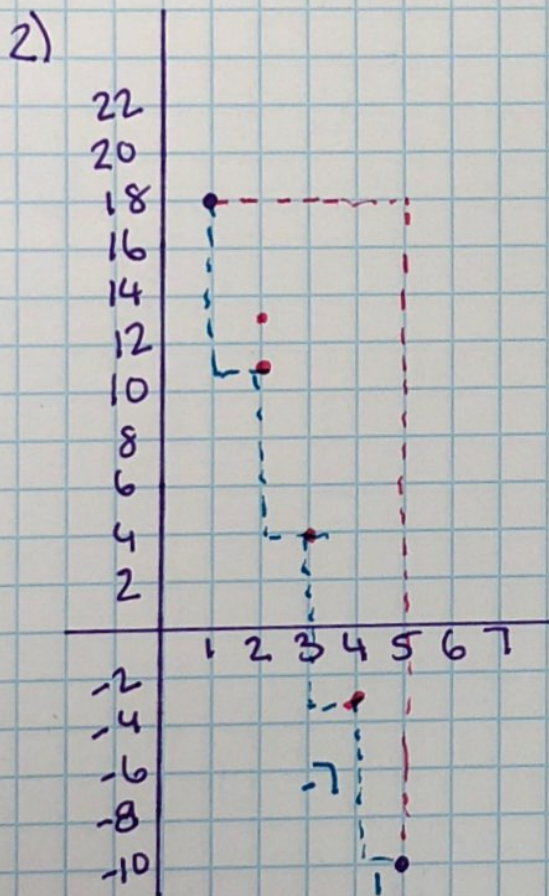 2)
22
20
18
16
14
12
10
8
6
4
2
1 2 3 4 5 6 7
-2
-4
-6
-7
-8
-10
1